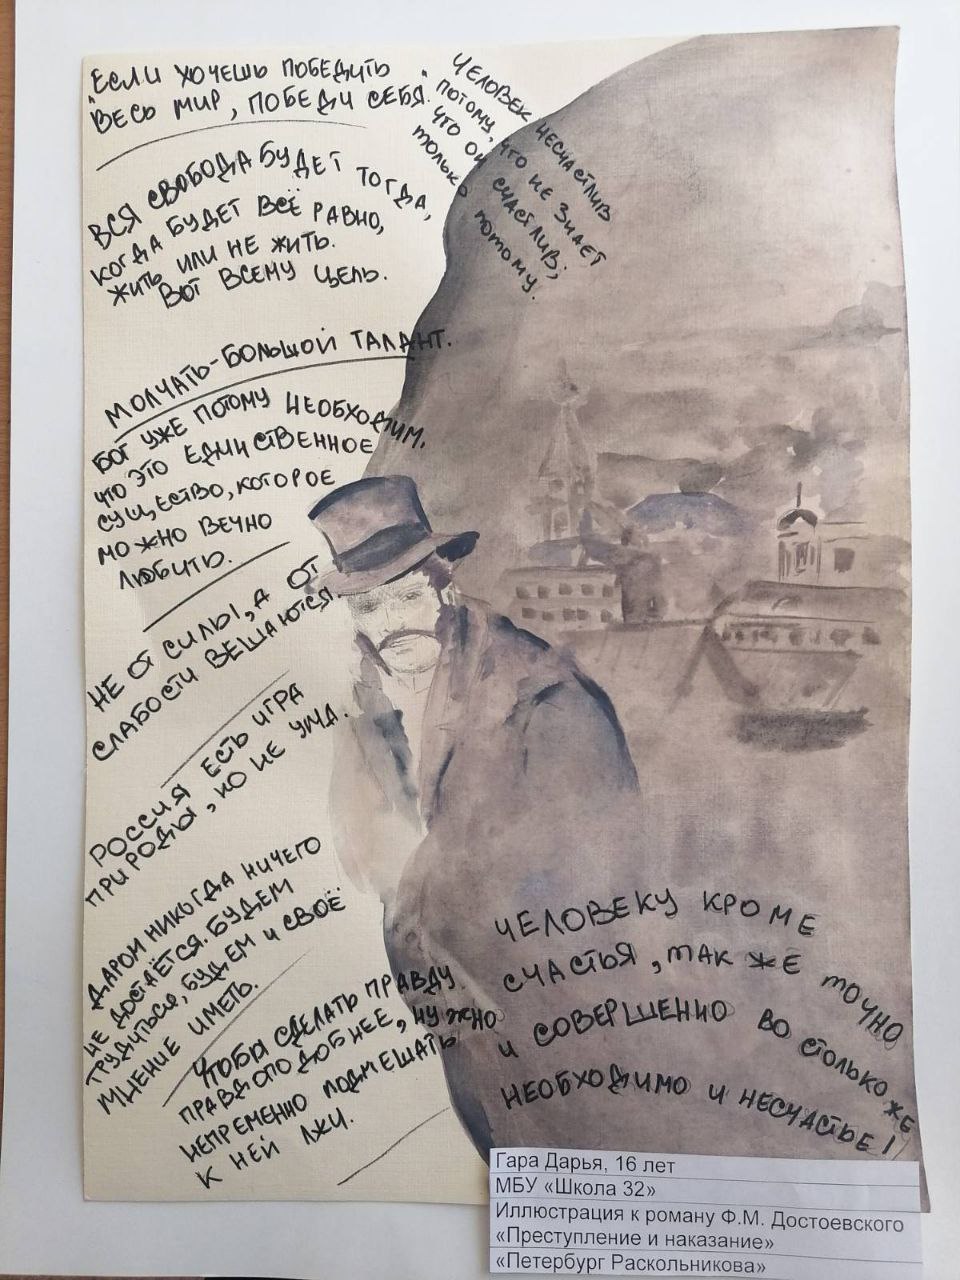 "Если хочешь победить
весь мир, победи себя."
Человек несчастлив
потому, что не знает
что он счастлив;
только потому.
Вся свобода будет тогда,
когда будет всё равно,
жить или не жить.
Вот всему цель.
Молчать-большой талант.
Бог уже потому необходим,
что это единственное
существо, которое
можно вечно
любить.
Не от силы, а от
слабости вешаются.
Россия есть игра
природы, но не ума.
Даром никогда ничего
не достаётся. Будем
трудиться, будем и своё
мнение иметь.
Чтобы сделать правду
правдоподобнее, нужно
непременно подмешать
к ней лжи.
Человеку кроме
счастья, так же точно
и совершенно во столько же
необходимо и несчастье!
Гара Дарья, 16 лет
МБУ «Школа 32»
Иллюстрация к роману Ф.М. Достоевского
«Преступление и наказание»
«Петербург Раскольникова»